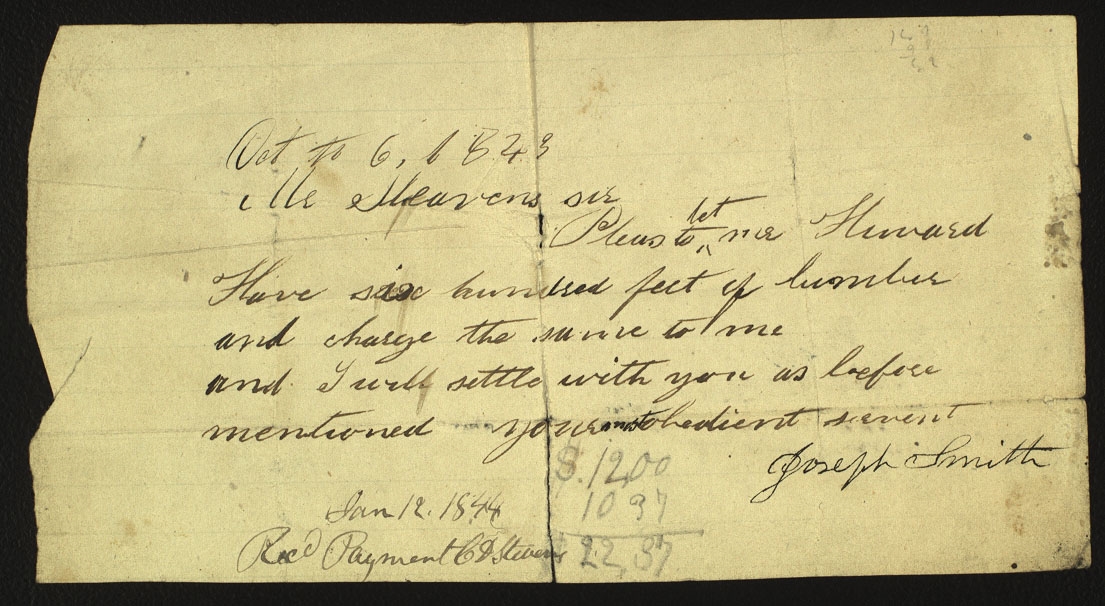 Oct th 6, 1843
Mr Steavens sir
Pleas to let me Huward
Have six hundred feet of lumber
and charge the same to me
and I will settle with you as before
mentioned your most obedient servent
Joseph Smith
$.12,00
10 37
22,37
Jan 12. 1844
Recd Payment C D Stevens